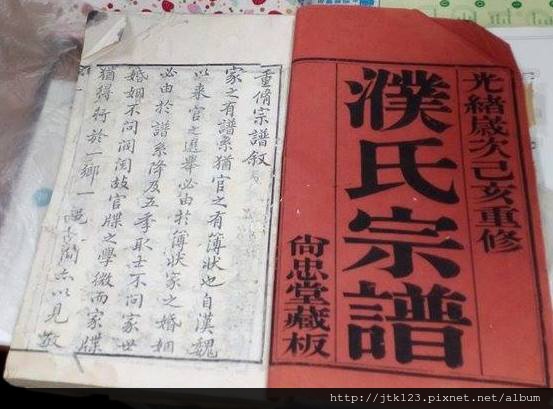 光緒歲次己亥重修
濮氏宗譜
尙忠堂藏板
重脩宗譜叙
家之有譜系猶官之有簿狀也自漢魏
以来官之選舉必由於簿狀家之婚姻
必由於譜系降及五季取士不問家世
婚姻不問閥閱故官牒之學微而家牒
猶得行於一鄉一邑以見敬
http://jtk123.pixnet.net/album